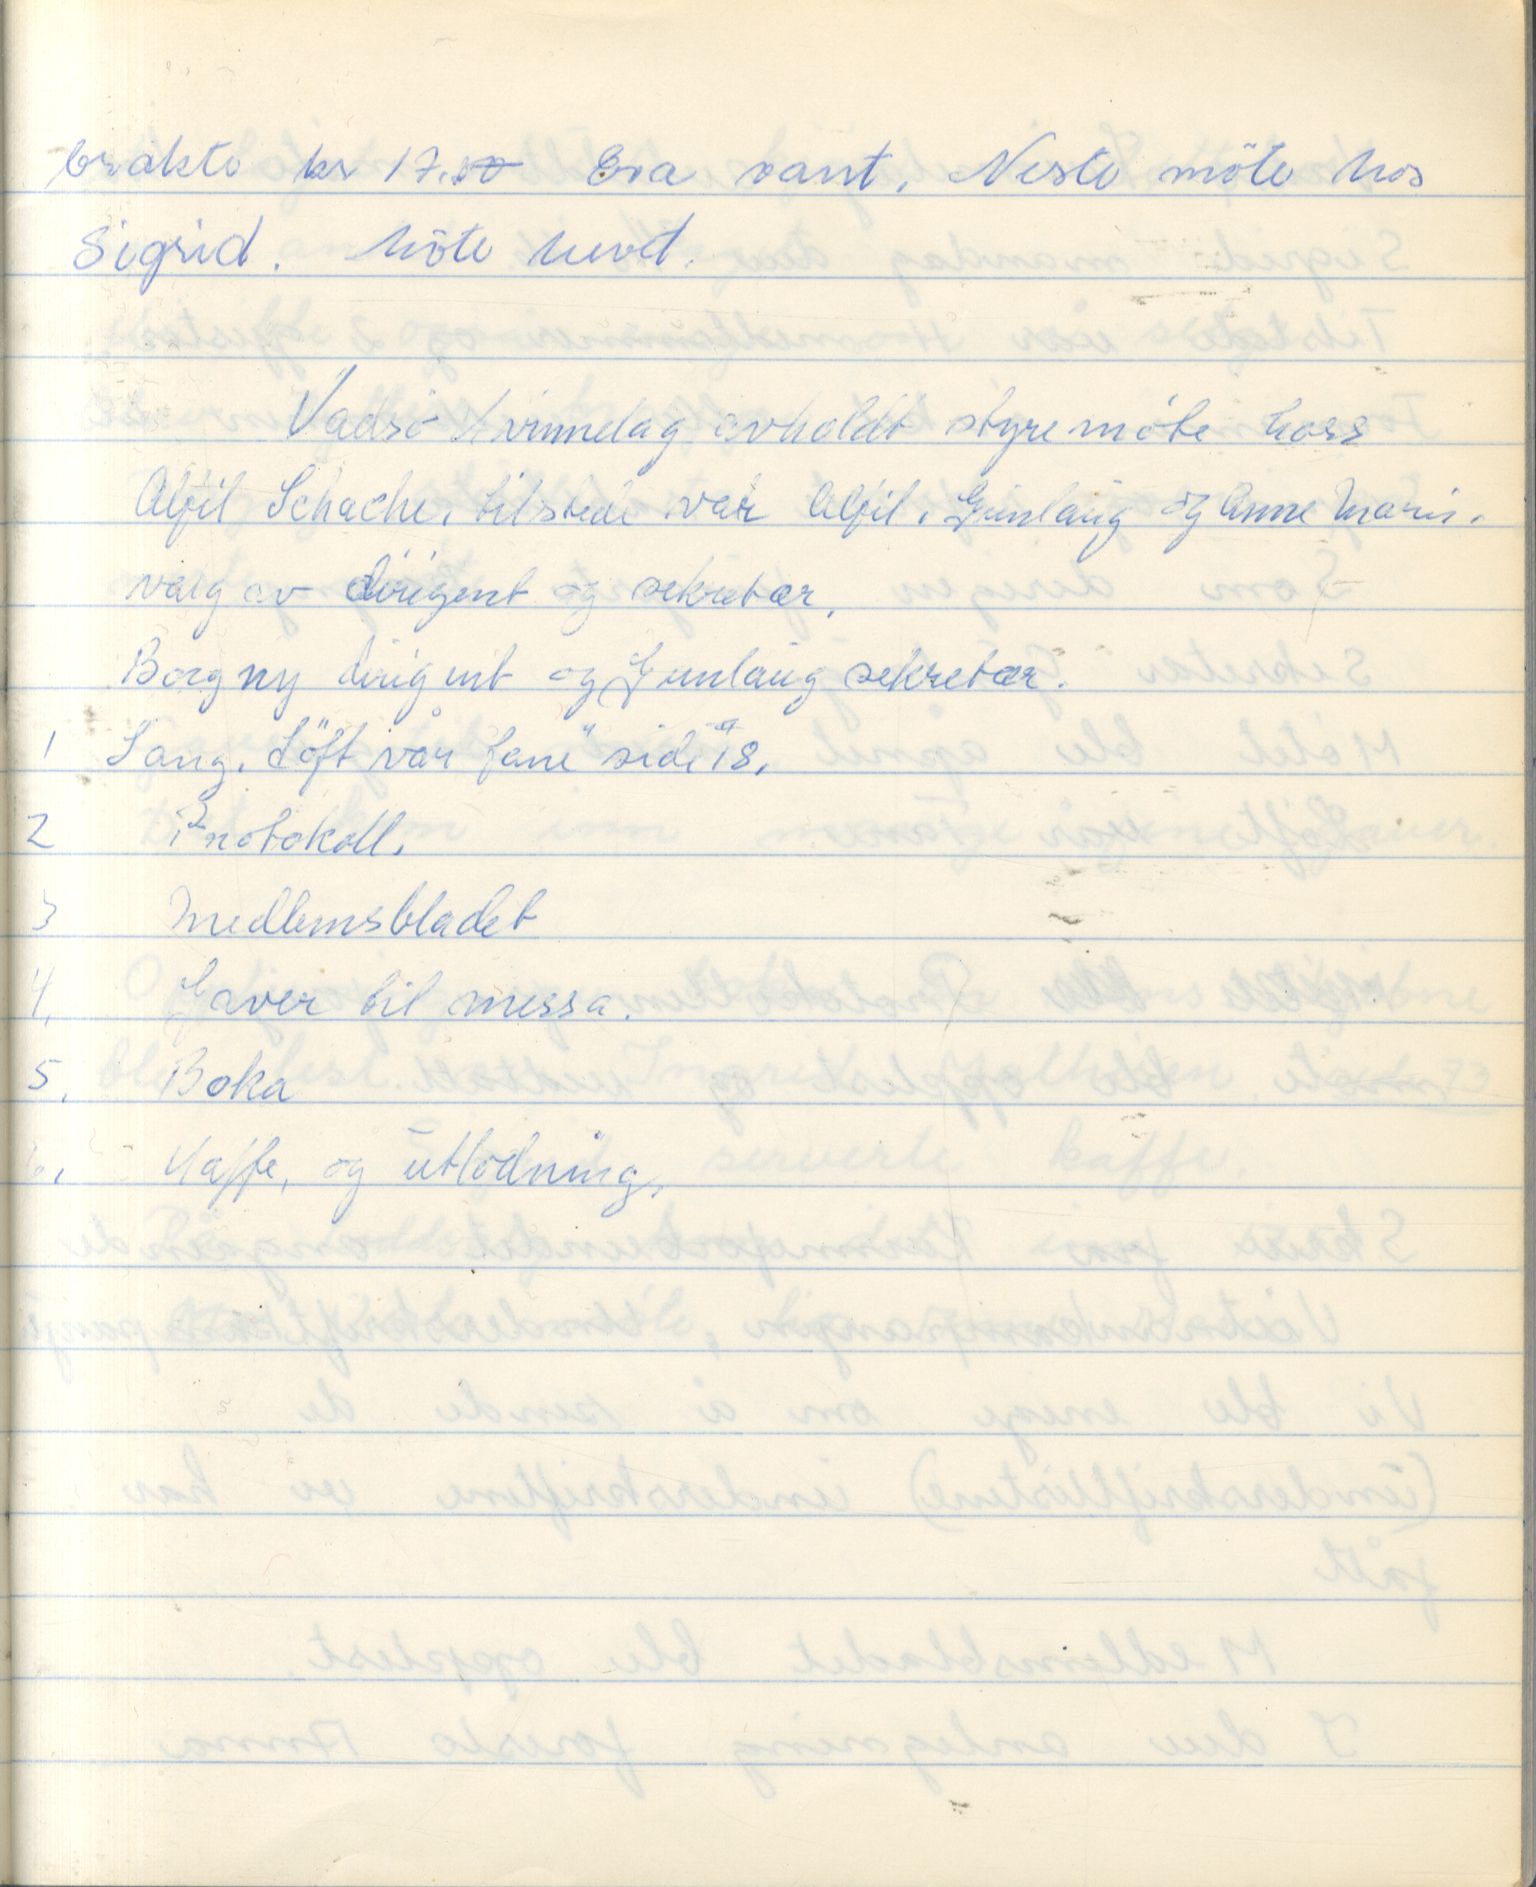 brakte kr 17.00 Eva vant. Neste möte hos
Sigrid. Möte hevet.
Vadsö Kvinnelag avholdt styremöte hoss
Alfil Schache. tilstede var Alfil, Gunlaug og Anne Marie.
valg av dirigent og sekretær.
Borgny dirigent og Gunlaug sekretær.
1 Sang. Löft vår fane" side 18.
2 Protokoll.
3 Medlemsbladet
4. Gaver til messa.
5. Boka
6. Kaffe, og utlodning.